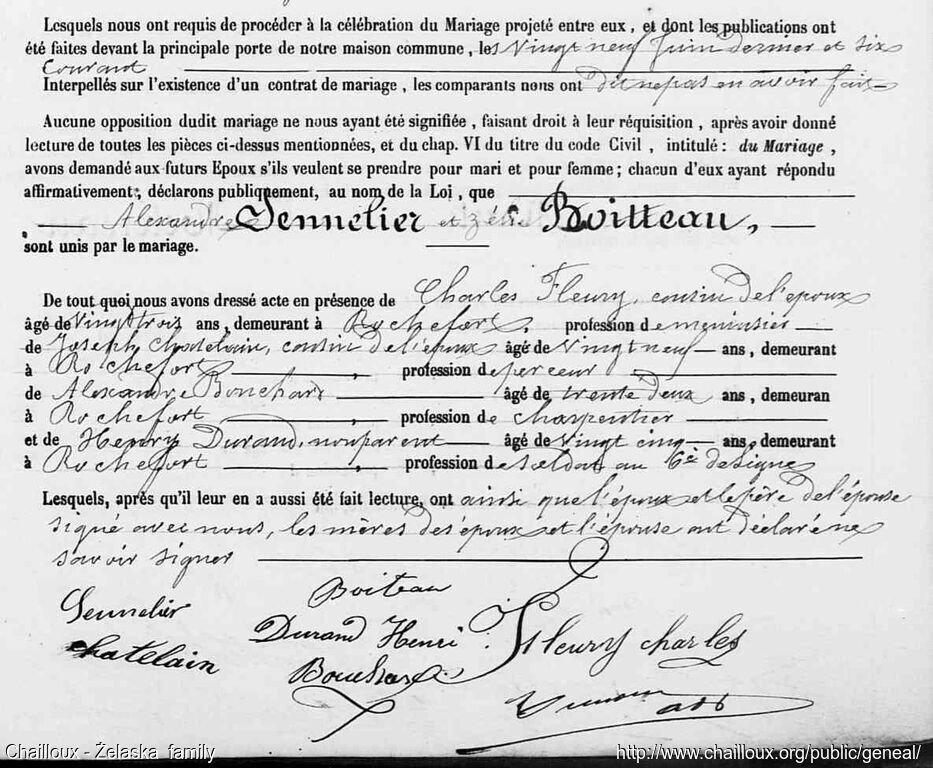 Lesquels nous ont requis de procéder à la célébration du Mariage projeté entre eux, et dont les publications ont
été faites devant la principale porte de notre maison commune, les vingt neuf Juin dernier et six
Courant
Interpellés sur l'existence d'un contrat de mariage, les comparants nous ont dit ne pas en avoir fait
Aucune opposition dudit mariage ne nous ayant été signifiée, faisant droit à leur réquisition, après avoir donné
lecture de toutes les pièces ci-dessus mentionnées, et du chap. VI du titre du code Civil, intitulé : du Mariage,
avons demandé aux futurs Epoux s'ils veulent se prendre pour mari et pour femme ; chacun d'eux ayant répondu
affirmativement, déclarons publiquement, au nom de la Loi, que
Alexandre Sennelier et Zélie Boitteau,
sont unis par le mariage.
De tout quoi nous avons dressé acte en présence de Charles Fleury, cousin de l'époux
âgé de vingt trois ans, demeurant à Rochefort, profession de menuisier
de Joseph Chatelain, cousin de l'époux âgé de vingt neuf ans, demeurant
à Rochefort, profession de perceur
de Alexandre Bouchard âgé de trente deux ans, demeuran
à Rochefort, profession de charpentier
et de Henry Durand, non parent âgé de vingt cinq ans, demeurant
à Rochefort, profession de soldat au 6e de ligne
Lesquels, après qu'il leur en a aussi été fait lecture, ont ainsi que l'époux et le père de l'épouse
signé avec nous, les mères des époux et l'épouse ont déclaré ne
savoir signer
Boiteau
Sennelier
Durand Henri
Fleury Charles
chatelain
Bouchard
Chailloux - Želaska family
http://www.chailloux.org/public/geneal/